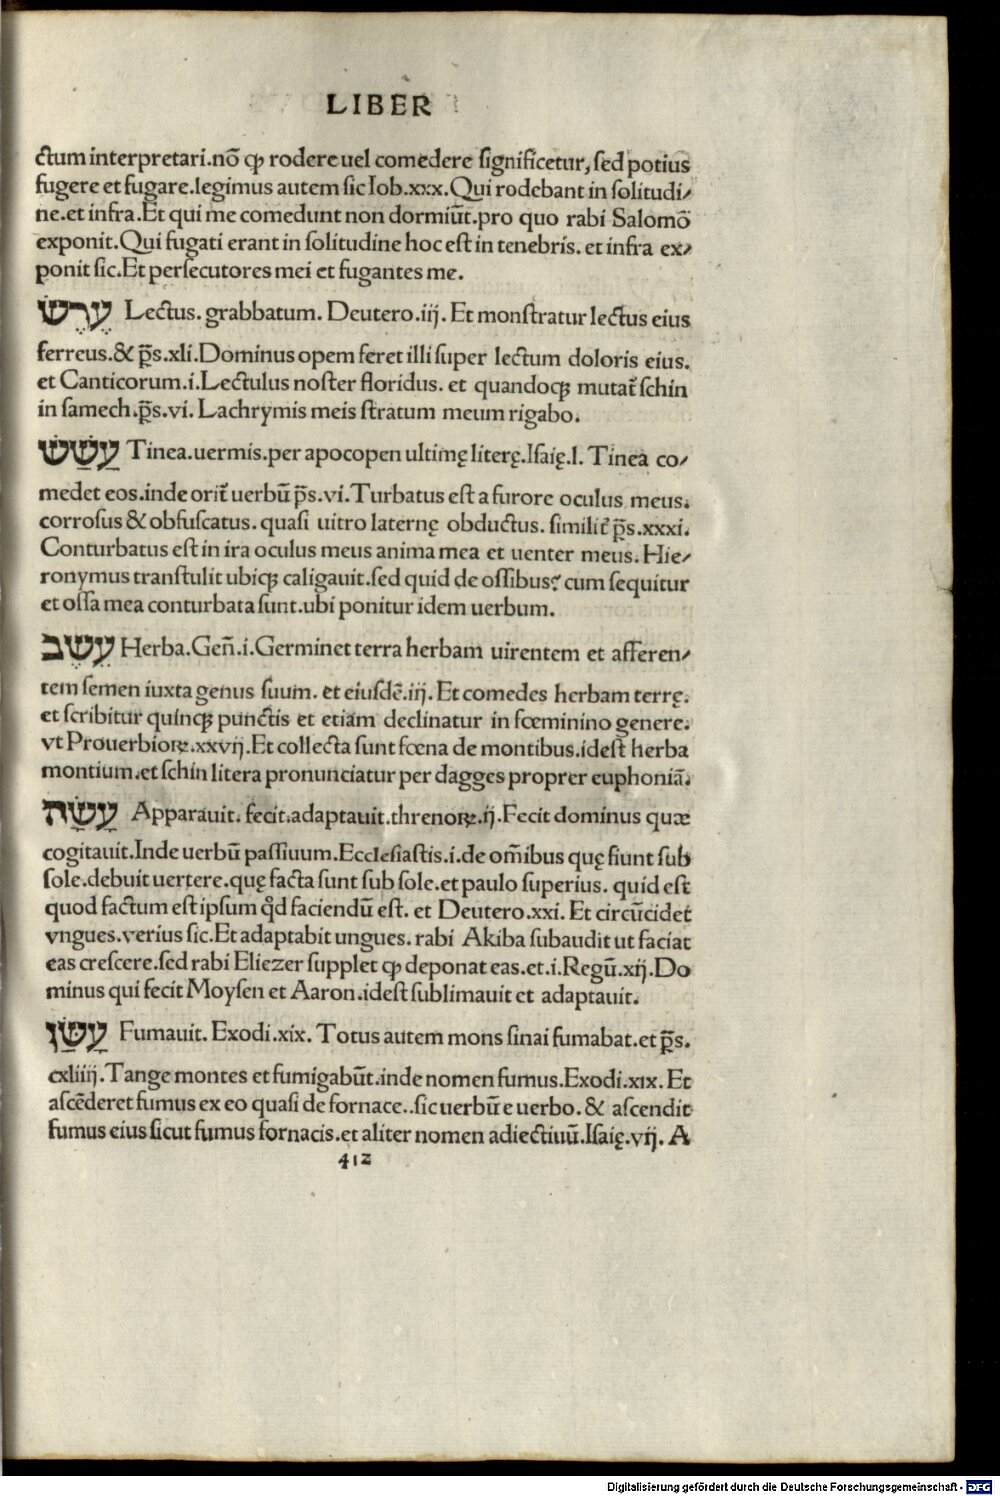 LIBER
ctum interpretari.nō ꝙ rodere uel comedere significetur, sed potius
fugere et fugare.legimus autem sic Iob.xxx.Qui rodebant in solitudi/
ne.et infra.Et qui me comedunt non dormiūt.pro quo rabi Salomō
exponit.Qui fugati erant in solitudine hoc est in tenebris.et infra ex/
ponit sic.Et persecutores mei et fugantes me.
עֶרֶשׂ Lectus. grabbatum. Deutero.iij. Et monstratur lectus eius
ferreus.& p̄s.xli.Dominus opem feret illi super lectum doloris eius.
et Canticorum.i.Lectulus noster floridus. et quandoqꝫ mutat̄ schin
in samech.p̄s.vi. Lachrymis meis stratum meum rigabo.
עָשַׁשׁ Tinea.uermis.per apocopen ultimę literę.Isaię.l. Tinea co/
medet eos.inde orit̄ uerbū p̄s.vi.Turbatus est a furore oculus meus.
corrosus & obfuscatus. quasi uitro laternę obductus. similit̄ p̄s.xxxi.
Conturbatus est in ira oculus meus anima mea et uenter meus. Hie/
ronymus transtulit ubiqꝫ caligauit.sed quid de ossibus? cum sequitur
et ossa mea conturbata sunt.ubi ponitur idem uerbum.
עֵשֶׂב Herba.Geñ.i.Germinet terra herbam uirentem et afferen/
tem semen iuxta genus suum. et eiusdē.iij. Et comedes herbam terrę.
et scribitur quinqꝫ punctis et etiam declinatur in fœminino genere.
vt Prouerbioꝝ.xxvij.Et collecta sunt fœna de montibus.idest herba
montium.et schin litera pronunciatur per dagges proprer euphoniā.
עָשָׂה Apparauit. fecit.adaptauit.threnoꝝ.ij.Fecit dominus quæ
cogitauit.Inde uerbū passiuum.Ecclesiastis.i.de om̄ibus quę fiunt sub
sole.debuit uertere.quę facta sunt sub sole.et paulo superius. quid est
quod factum est ipsum qd̄ faciendū est. et Deutero.xxi. Et circūcidet
vngues.verius sic.Et adaptabit ungues. rabi Akiba subaudit ut faciat
eas crescere.sed rabi Eliezer supplet ꝙ deponat eas.et.i.Regū.xij.Do
minus qui fecit Moysen et Aaron.idest sublimauit et adaptauit.
עָשַׁן Fumauit. Exodi.xix. Totus autem mons sinai fumabat.et p̄s.
cxliiij.Tange montes et fumigabūt.inde nomen fumus.Exodi.xix. Et
ascēderet fumus ex eo quasi de fornace..sic uerbū e uerbo. & ascendit
fumus eius sicut fumus fornacis.et aliter nomen adiectiuū.Isaię.vij. A
412
Digitalisierung gefördert durch die Deutsche Forschungsgemeinschaft - DFG